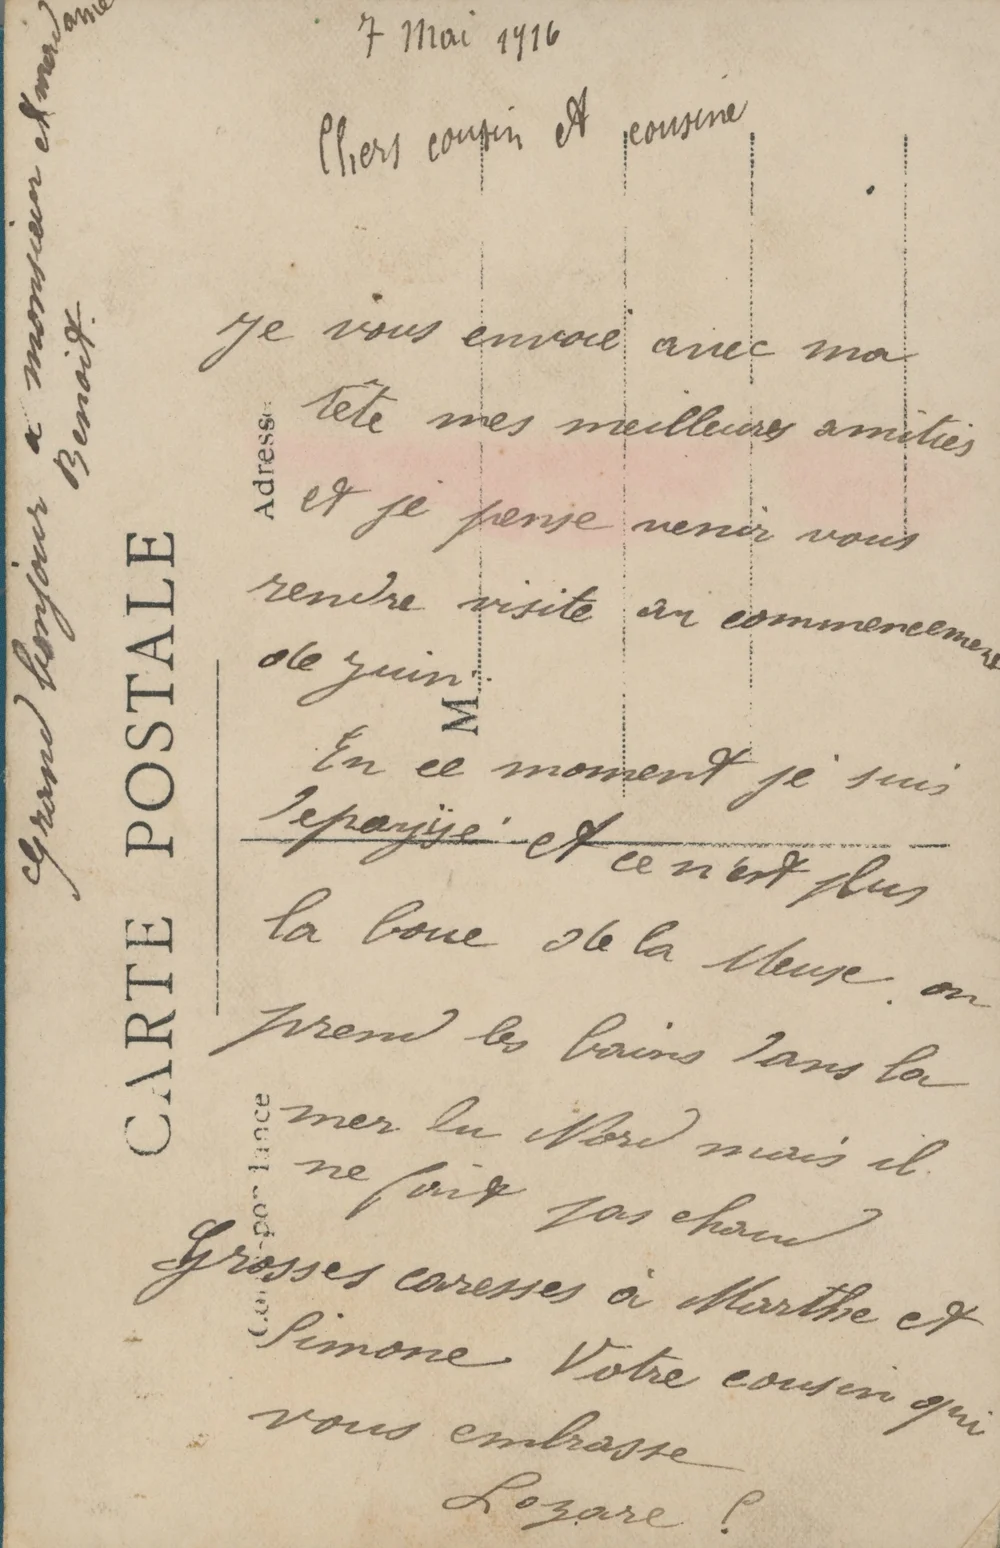 7 Mai 1916
Chers cousin et cousine
Je vous envoie avec ma
tête mes meilleures amitiés
et je pense venir vous
rendre visite au commencement
de juin.
En ce moment je suis
et ce n'est plus
la boue de la Meuse. on
prend les bains dans la
mer du Nord mais il
ne fait pas chaud
Grosses caresses à Marthe et
Simone Votre cousin qui
vous embrasse
Lozare
Grand bonjour a monsieur et madame
Benoit.
CARTE POSTALE
Adresse
M